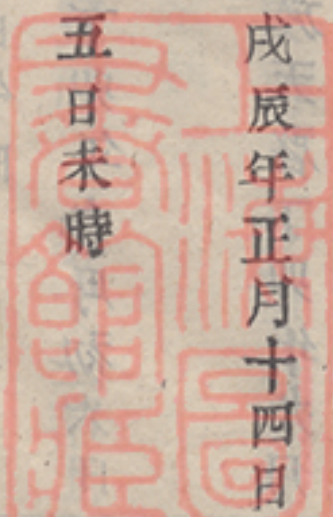 戌辰年正月十四日
五日未時